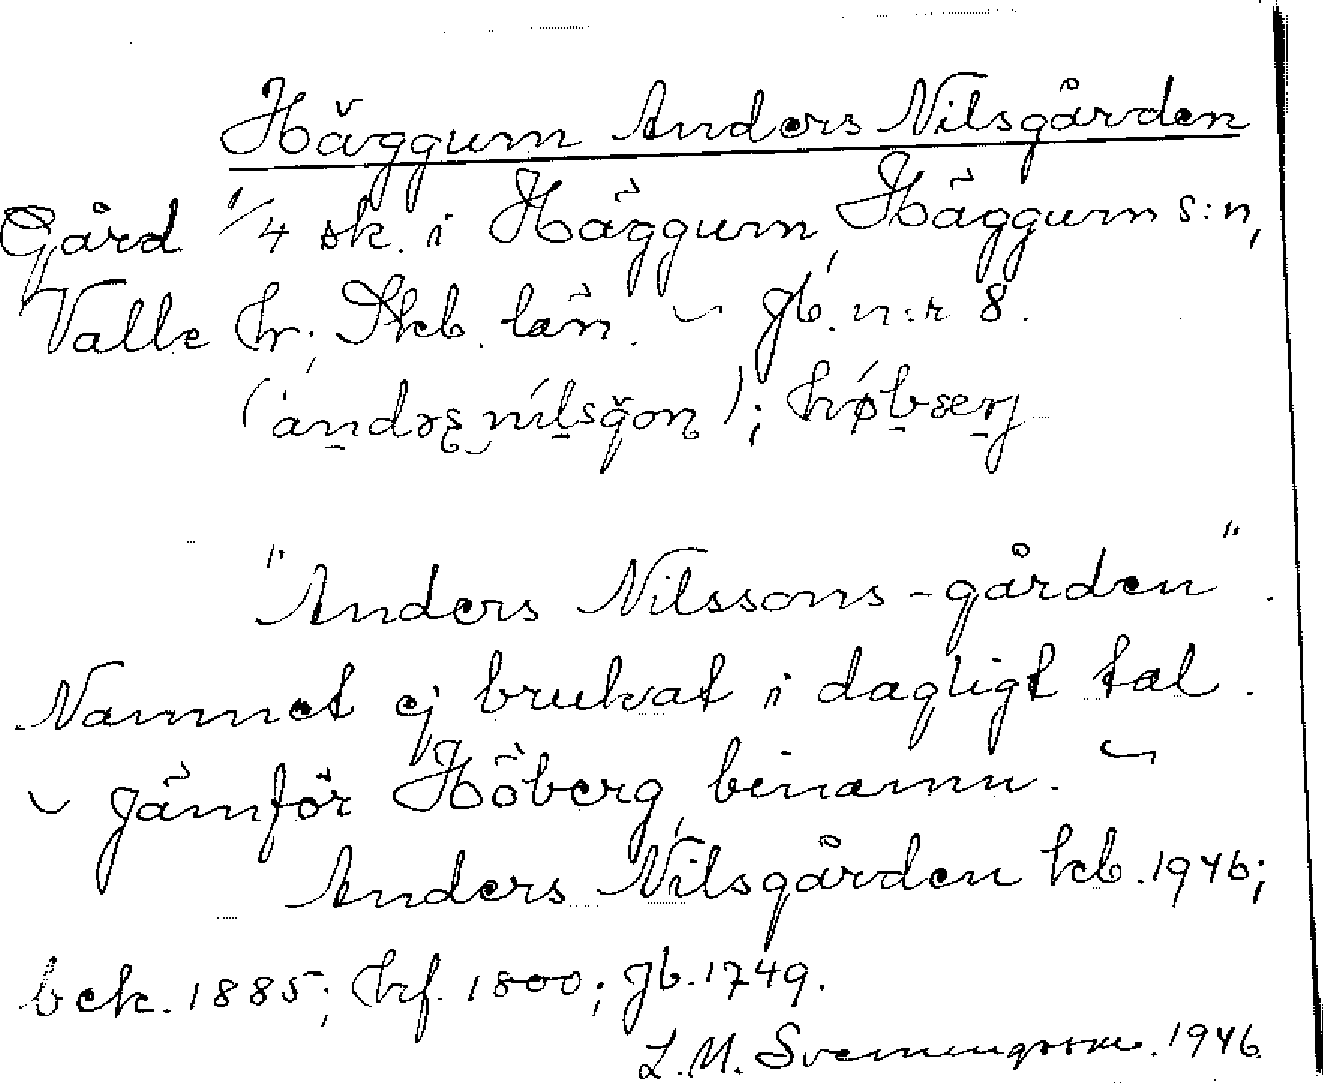 Häggum Anders Nilsgården
Gård 1/4 sk. i Häggum, Häggum s:n,
Valle hr; Skb. län. ~ Gb. n:r 8.
"Anders Nilssons-gården".
Namnet ej brukat i dagligt tal.
~ Jämför Höberg, binamn. ~
Anders Nilsgården kb. 1946;
bek. 1885; hrf. 1800; Gb. 1749.
L.M. Svenungsson. 1946